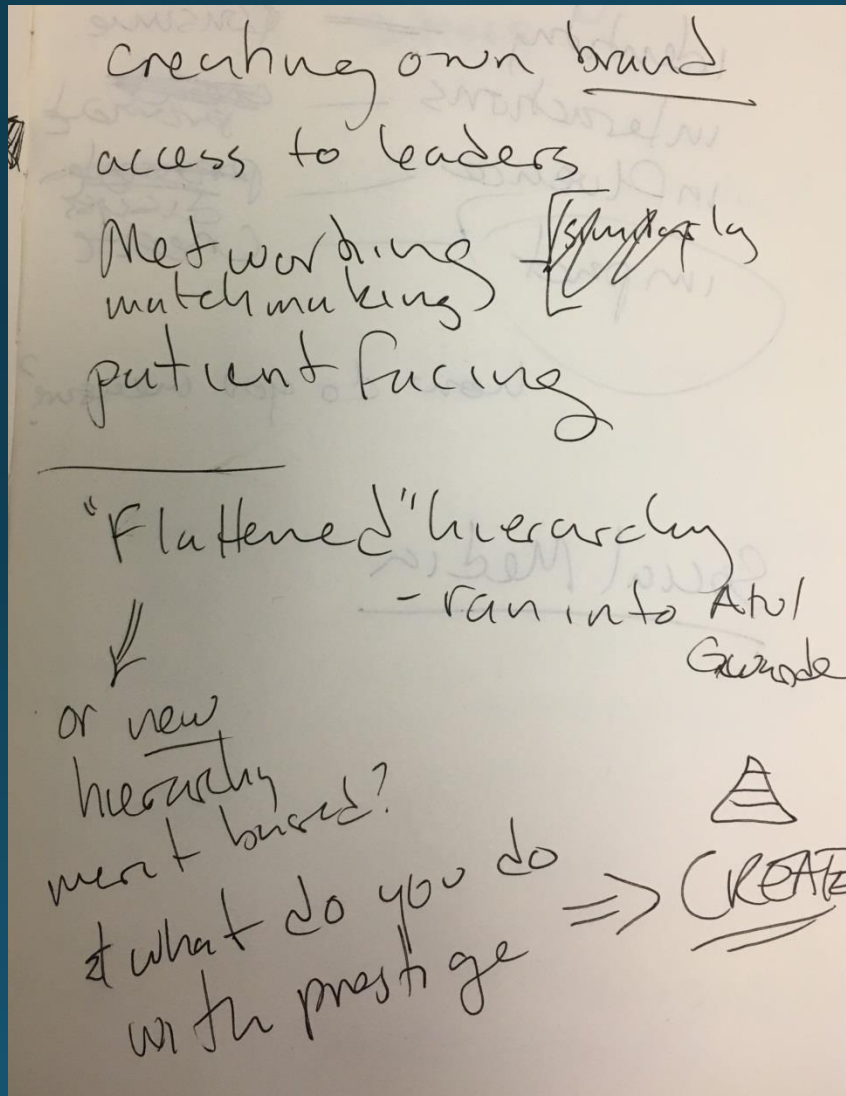 creating own brand
access to leaders
Networking -
matchmaking
patient facing
"Flattened" hierarchy
- ran into Atul
Gwande
or new
hierarchy
merit based?
& what do you do
with prestige => CREATE
Social Media